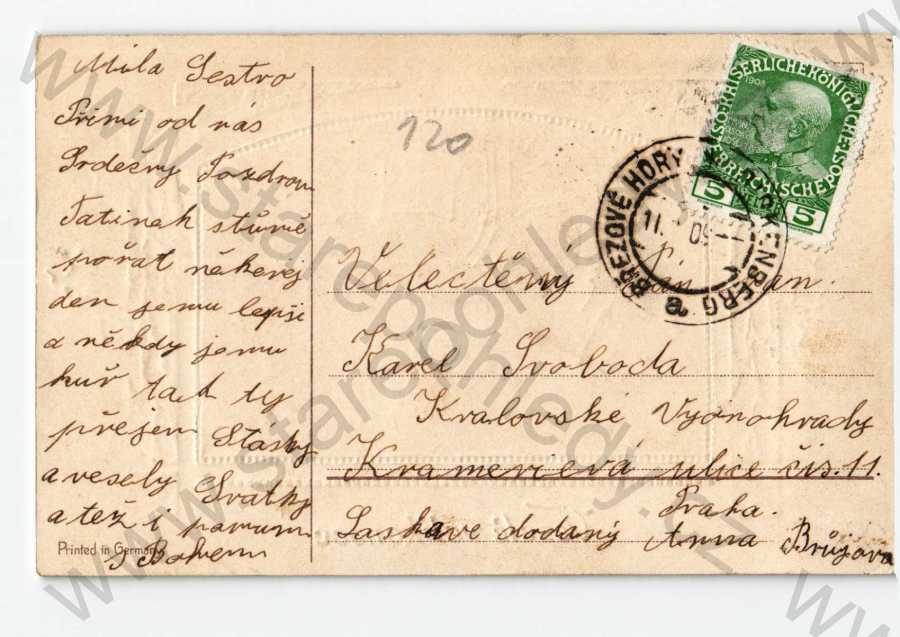 Milá Sestro
Přimi od nás
Srdečny Pozdrav
Tatinek stůně
pořat někerej
den jemu lepši
a někdy jemu
huř tak ty
přejem Stásky
a vesely Svatky
a též i panum
s Bohem
Printed in Germany
120
KAISERLICHE KÖNIGLICHE ÖSTERREICHISCHE POST
1908
5 5
BŘEZOVÉ HORY BIRKENBERG
11. 09
a
Velectěný Pan
Karel Svoboda
Kralovské Vyonohrady
Krameriová ulice čis. 11.
Praha.
Laskave dodaný Anna Brůjova
www.staropohledy.cz